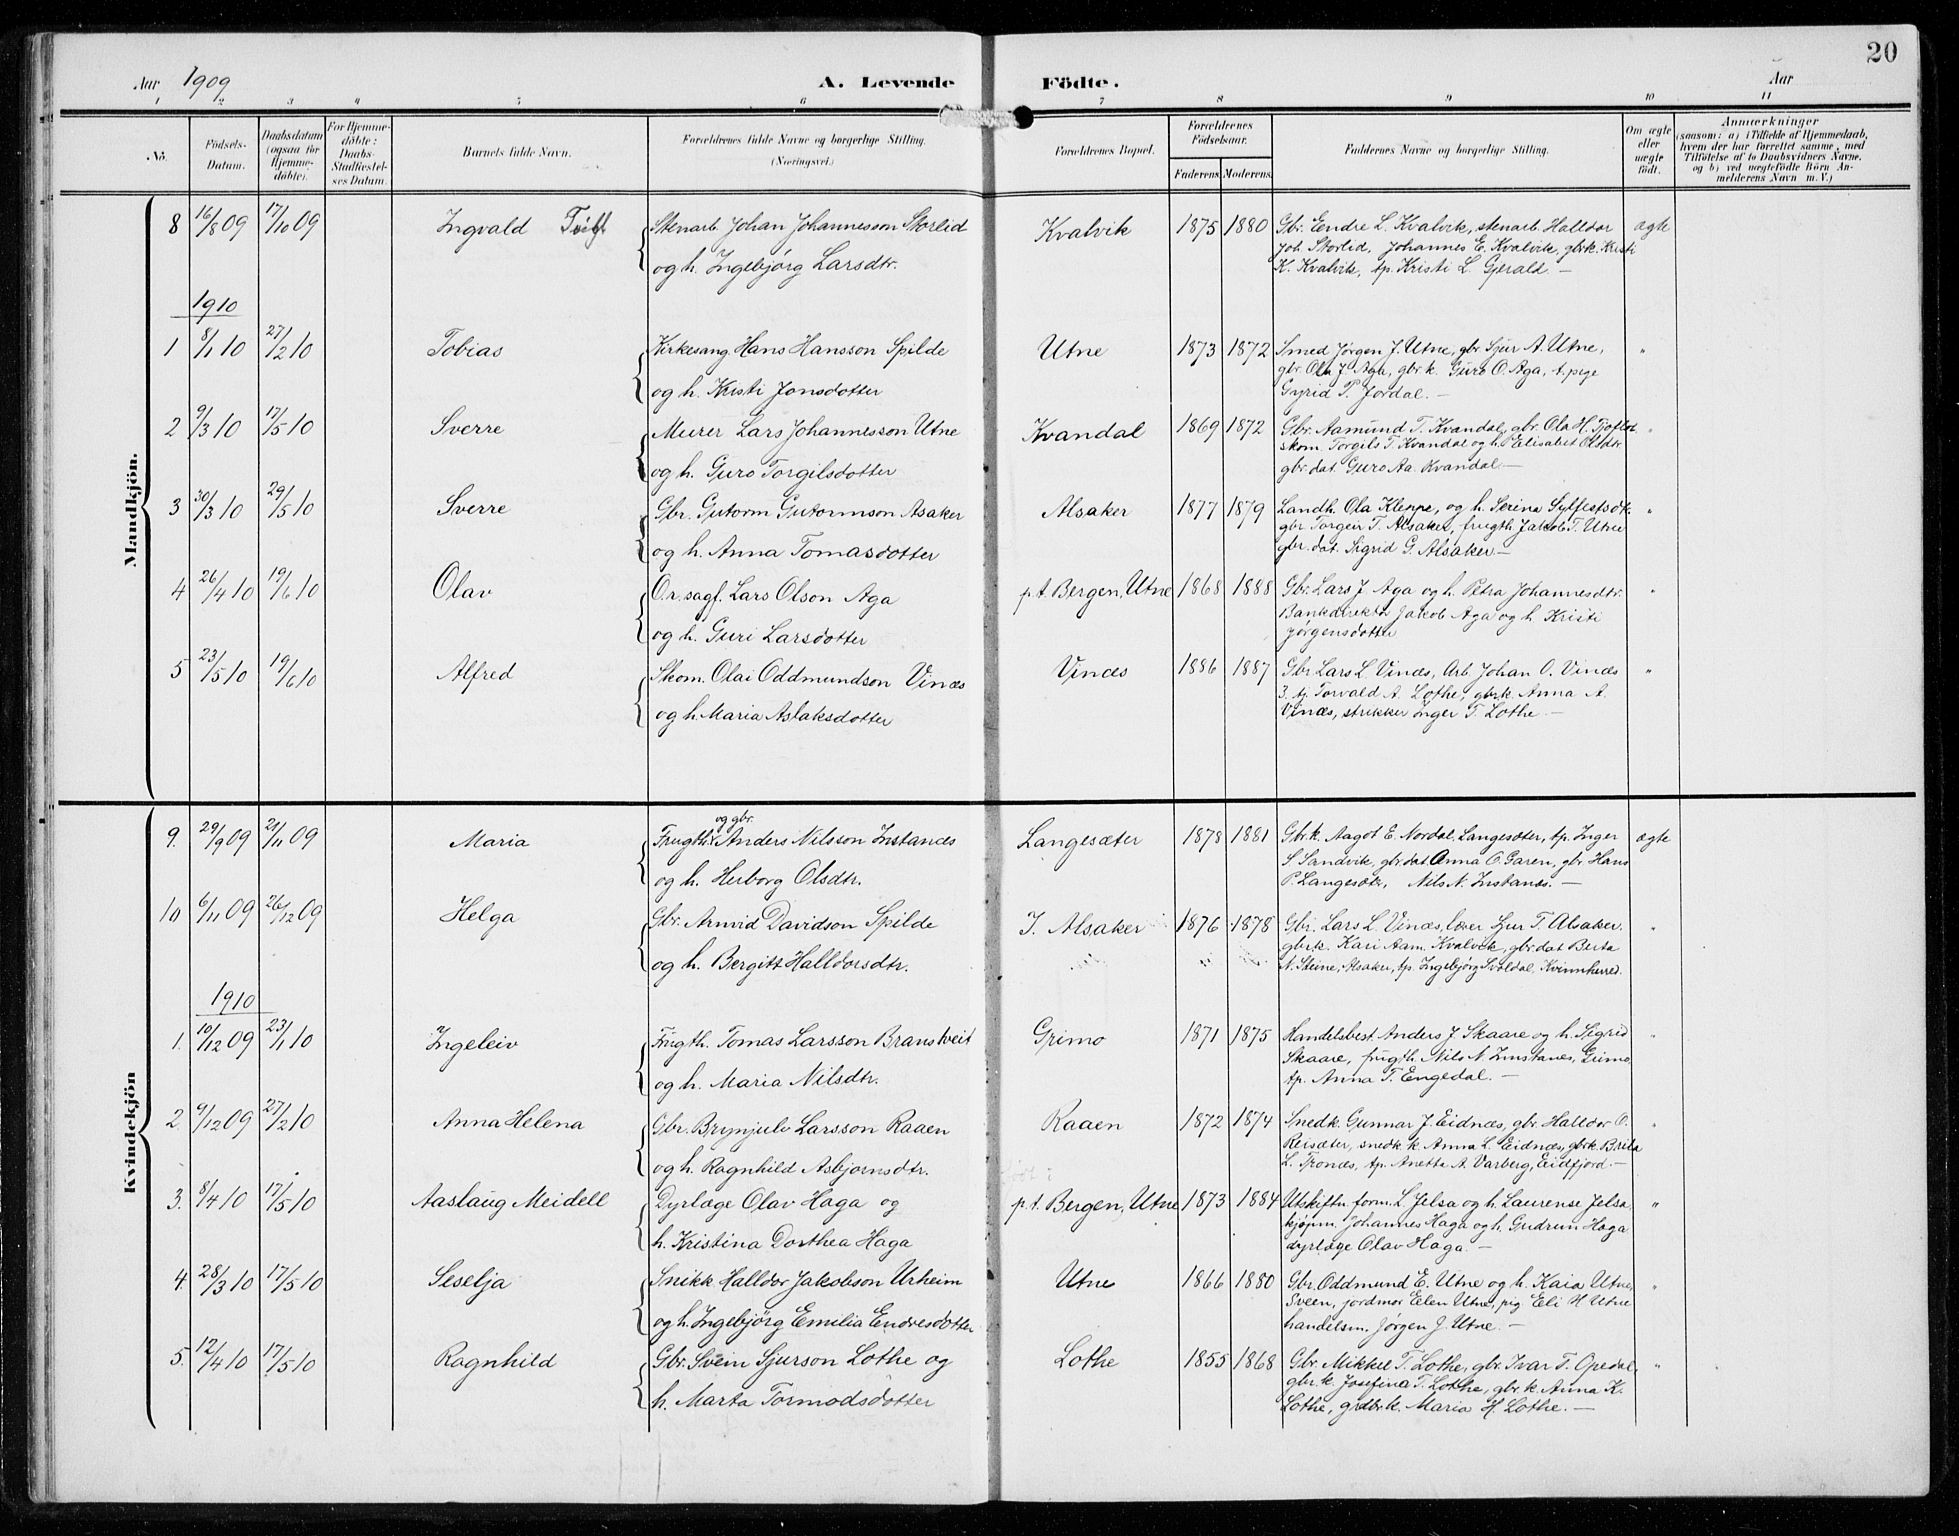 20
Aar 1909 A. Levende Födte. Aar
1 2 3 4 5 6 7 8 9 10 11
No. Födsels-Datum. Daabsdatum (ogsaa for Hjemme-döbte). For Hjemme-döbte: Daabs-Stadfæstel-ses Datum. Barnets fulde Navn. Forældrenes fulde Navne og borgerlige Stilling. (Næringsvei.) Forældrenes Bopæl. Forældrenes Födselsaar. Faderens Moderens Faddernes Navne og borgerlige Stilling. Om ægte eller uægte födt. Anmærkninger (saasom: a) i Tilfælde af Hjemmedaab, hvem der har forrettet samme, med Tilföielse af to Daabsvidners Navne, og b) ved uægtefödte Börn An-melderens Navn m. V.)
Mandkjön.
8 16/8 09 17/10 09 Ingvald Stenarb. Johan Johannesson Storlid Kvalvik 1875 1880 Gbr. Endre L. Kvalvik, stenarb. Halldor ægte
Joh. Storlid, Johannes E. Kvalvik, gbrk. Kristi
og h. Ingebjörg Larsdtr. K. Kvalvik, tp. Kristi L. Gjerald. —
1910
1 8/1 10 27/2 10 Tobias Kirkesang. Hans Hansson Spilde Utne 1873 1872 Smed Jörgen J. Utne, gbr. Sjur A. Utne, "
gbr. Ola J. Aga, gbr k. Guro O. Aga, t. pige
og h. Kristi Jonsdotter Gyrid P. Jordal. —
2 9/3 10 17/5 10 Sverre Murer Lars Johannesson Utne Kvandal 1869 1872 Gbr. Aamund T. Kvandal, gbr. Ola H. Tjoflot "
skom. Torgils T. Kvandal og h. Elisabet Olsdtr.
og h. Guro Torgilsdotter gbr. dat. Guro Aa. Kvandal. —
3 30/3 10 29/5 10 Sverre Gbr. Gutorm Gutormson Asaker Alsaker 1877 1879 Landh. Ola Kleppe, og h. Serina Sylfestsdtr. "
gbr. Torgeir T. Alsaker, frugth. Jakob T. Utne
og h. Anna Tomasdotter gbr. dat. Sigrid G. Alsaker —
4 26/4 10 19/6 10 Olav O.r. sagf. Lars Olson Aga p.t. Bergen, Utne 1868 1888 Gbr. Lars J. Aga og h. Petra Johannesdtr. "
Bankdirektör Jakob Aga og h. Kristi
og h. Guri Larsdotter Jörgensdotter
5 23/5 10 19/6 10 Alfred Skom. Olai Oddmundson Vinæs Vinæs 1886 1887 Gbr. Lars L. Vinæs, Arb. Johan O. Vinæs "
Torvald A. Lothe, gbrk. Anna A.
og h. Maria Aslaksdotter Vinæs, strikker Inger T. Lothe. —
Kvindekjön
og gbr.
9. 29/9 09 21/11 09 Maria Frugth. Anders Nilsson Instanæs Langesæter 1878 1881 Gbr.k. Aagot E. Nordal, Langesæter, tp. Inger ægte
S. Sandvik, gbr. dat. Anna O. Garen, gbr. Hans
og h. Herborg Olsdtr. P. Langesæt, Nils N. Instanæs. —
10 6/11 09 26/12 09 Helga Gbr. Arnvid Davidson Spilde I. Alsaker 1876 1878 Gbr. Lars L. Vinæs, lærer Sjur T. Alsaker. "
gbrk. Kari Aam. Kvalvik, gbr. dat Berta
og h. Bergitt Halldorsdtr. N. Steine, Alsaker, tp. Ingebjörg Svoldal, Kvinnherred.
1910
1. 10/12 09 23/1 10 Ingeleiv Frugth. Tomas Larsson Branstveit Grimo 1871 1875 Handelsbest. Anders J. Skaare og h. Sigrid "
Skaare, frugth. Nils N. Innstanes, Grimo
og h. Maria Nilsdtr. tp. Anna T. Engedal. —
2 9/12 09 27/2 10 Anna Helena Gbr. Brynjulv Larsson Raaen Raaen 1872 1874 Snedk. Gunnar J. Eidnæs, gbr. Halldor O. "
Reisæter, snedk. k. Anna L. Eidnæs, gbr k. Brita
og h. Ragnhild Asbjornsdtr. L. Tronæs, tp. Anetta A. Varberg, Eidfjord —
3. 8/4 10 17/5 10 Aaslaug Meidell Dyrlæge Olav Haga og p.t. Bergen, Utne 1873 1884 Utskiftn. form. L. Jelsa og h. Laurense Jelsa, "
kjöpm. Johannes Haga og h. Gudrun Haga
h. Kristina Dorthea Haga dyrlæge Olav Haga. —
4. 28/3 10 17/5 10 Seselja Snikk. Halldor Jakobson Urheim Utne 1866 1880 Gbr. Oddmund E. Utne og h. Kaia Utne, "
Sveen, jordmor Elen Utne, pig. Eli H Utne
og h. Ingebjörg Emilia Endresdotter handelsm. Jörgen J. Utne. —
5. 12/4 10 17/5 10 Ragnhild Gbr. Svein Sjurson Lothe og Lothe 1855 1868 Gbr. Mikkel T. Lothe, gbr. Ivar T. Opedal, "
gbr. k. Josefina T. Lothe, gbr. k. Anna K.
h. Marta Tormodsdotter Lothe, grdbr. k. Maria H. Lothe. —